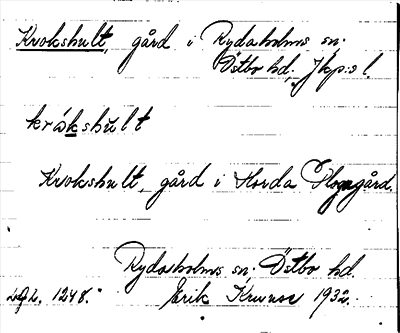 Krokshult, gård i Rydaholms sn;
Östbo hd, Jkp:s l.
kråkshult
Krokshult, gård i Horda
Rydaholms sn; Östbo hd.
1248. Erik 1932.